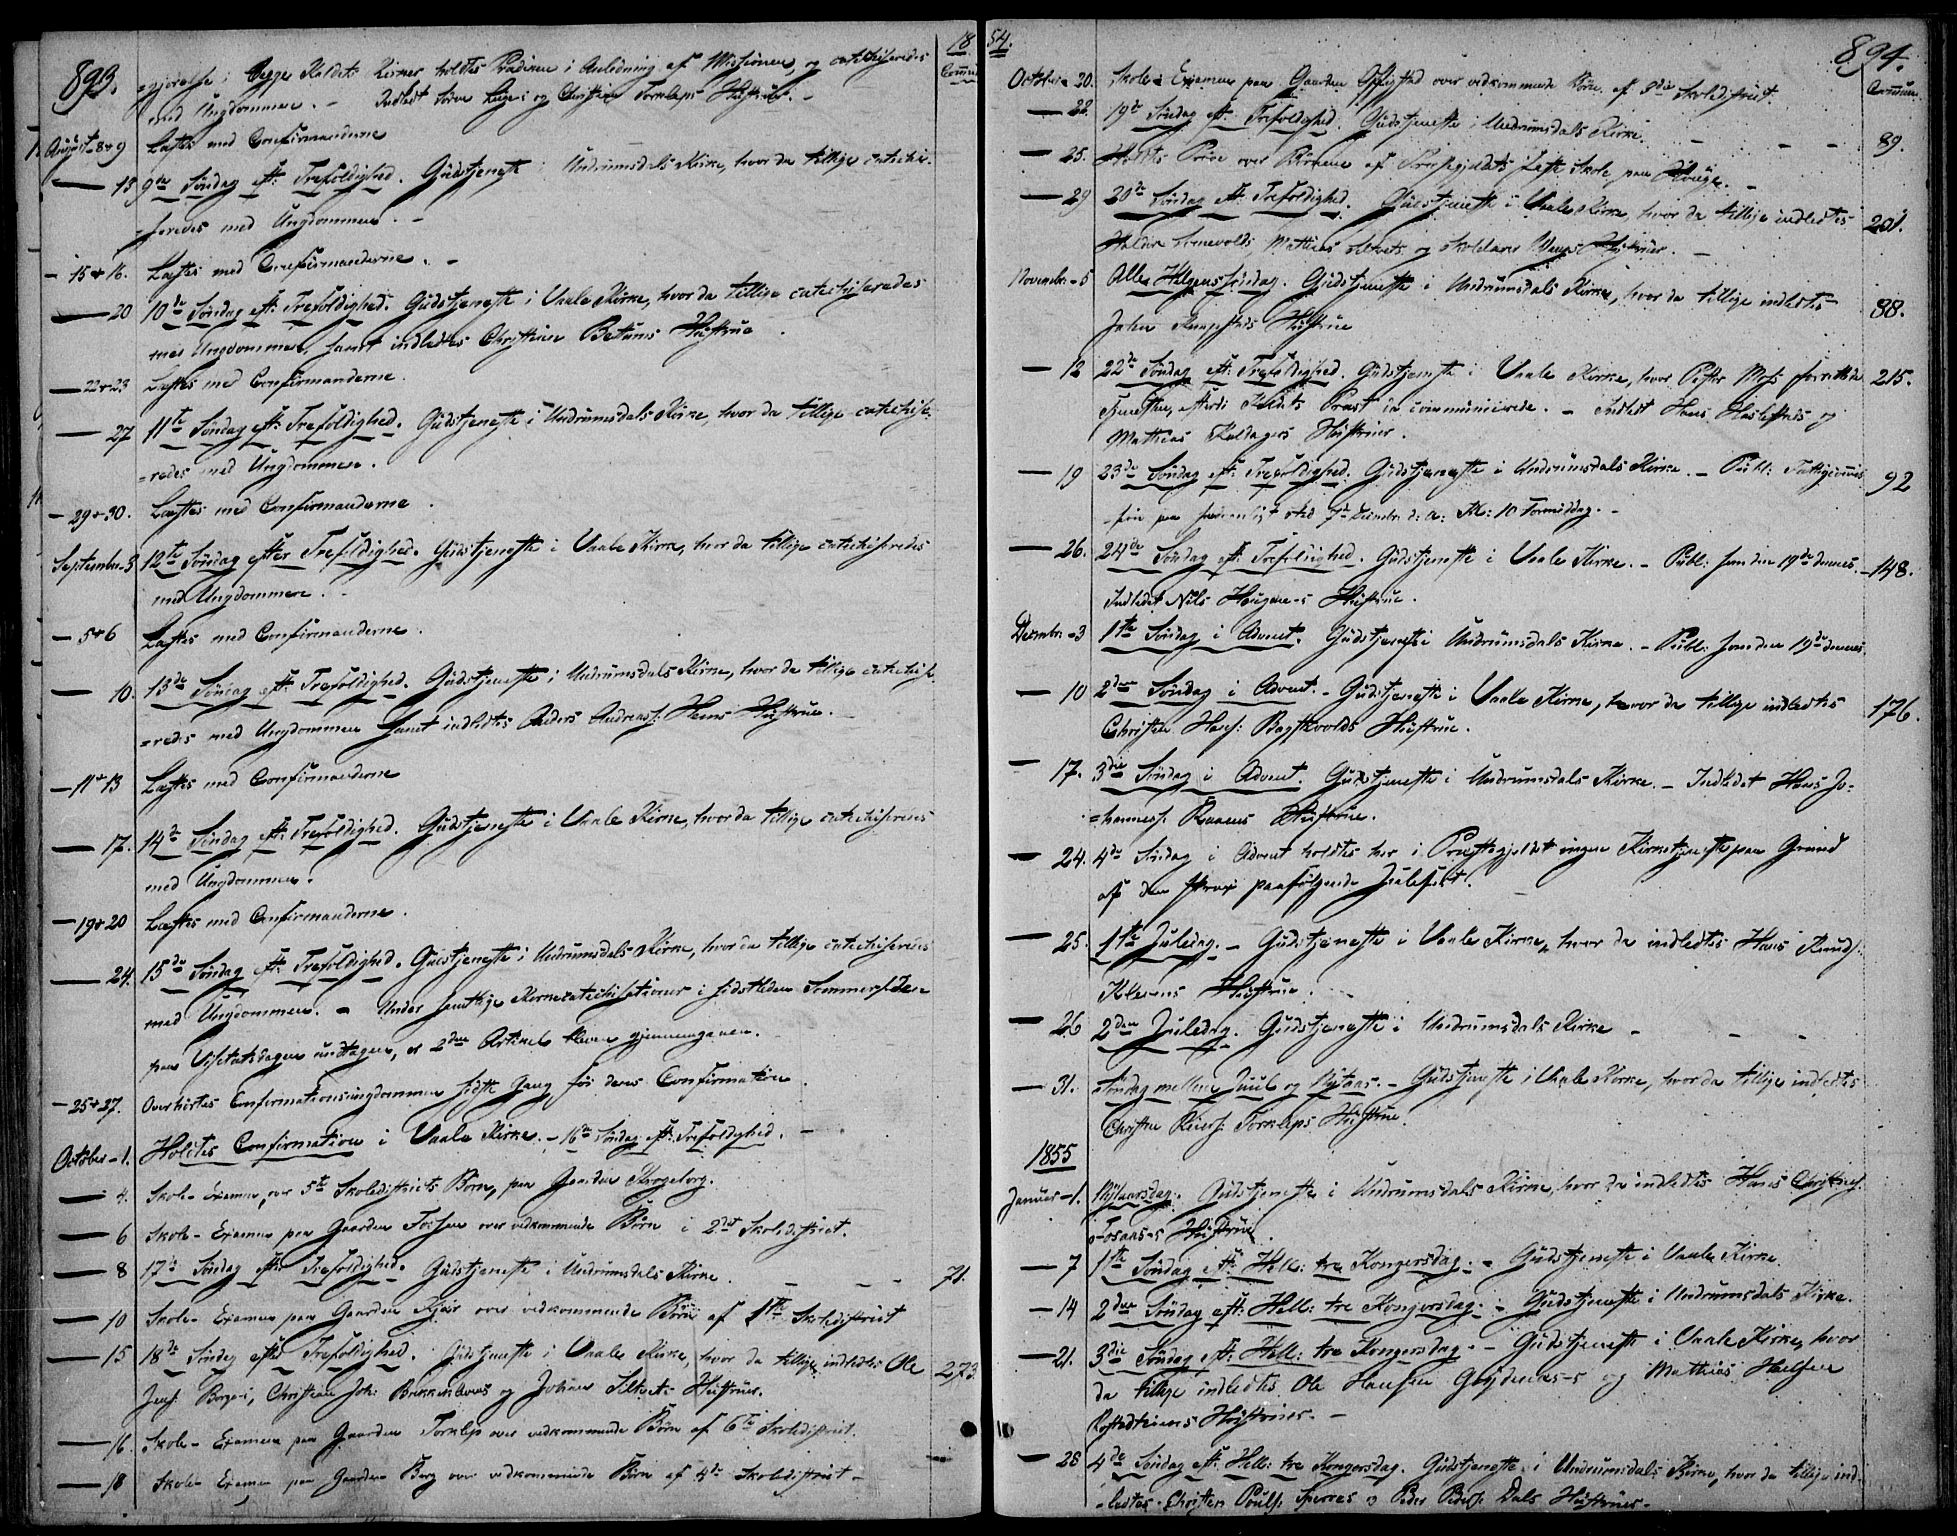 893.
18
Commun:
gjørelse i begge Kaldets Kirker holdtes Prædiken i Anledning af Missionen, og catechiseredes
med Ungdommen. - Indledt
Huustruer. -
August - 8 & 9 Læstes med Confirmanderne
13 9de Søndag eft: Trefoldighed. Gudstjeneste i Undrumsdals Kirke, hvor da tillige catechi-
seredes med Ungdommen. -
- 15 & 16. Læstes med Confirmanderne. -
20 10de Søndag eft: Trefoldighed. Gudstjeneste i Vaale Kirke, hvor da tillige catechiseredes
med Ungdommen, samt indledtes Christian Bettums Huustrue
22 & 23 Læstes med Confirmanderne.
27 11te Søndag eft: Trefoldighed. Gudstjeneste i Undrumsdals Kirke, hvor da tillige catechise-
=redes med Ungdommen.
- 29 & 30. Læstes med Confirmanderne.
September - 3 12te Søndag efter Trefoldighed. Gudstjeneste i Vaale Kirke, hvor da tillige catechiseredes
med Ungdommen. -
- 5 & 6 Læstes med Confirmanderne.
10. 13de Søndag eft: Trefoldighed. Gudstjeneste i Undrumsdals Kirke, hvor da tillige catechise-
=redes med Ungdommen samt indledtes Anders Andreass: Hems Huustrue. -
- 11 & 13 Læstes med Confirmanderne
17. 14de Søndag eft: Trefoldighed. Gudstjeneste i Vaale Kirke, hvor da tillige catechiseredes
med Ungdommen.
- 19 & 20 Læstes med Confirmanderne.
24. 15de Søndag eft: Trefoldighed. Gudstjeneste i Undrumsdals Kirke, hvor da tillige catechiseredes
med Ungdommen. - Under samtlige Kirkecatechisationer i sidstleden Sommer, den
paa Visitatsdagen undtagen, er 2den Artikel bleven gjennemgaaen.
- 25 & 27. Overhørtes Confirmationsungdommen sidste Gang før deres Confirmation.
October - 1. Holdtes Confirmation i Vaale Kirke. - 16de Søndag eft: Trefoldighed. -
4. Skole-Examen, over 5te Skoledistricts Børn, paa Gaarden
6 Skole-Examen paa Gaarden over vedkommende Børn i 2det Skoledistrict.
8 17de Søndag eft: Trefoldighed. Gudstjeneste i Undrumsdals Kirke. - - - 71.
10 Skole-Examen paa Gaarden Kjær over vedkommende Børn af 1ste Skoledistrict
15 18de Søndag efter Trefoldighed. Gudstjeneste i Vaale Kirke, hvor da tillige indledtes Ole 273.
Christian Joh: og Johan Huustruer.
16. Skole-Examen paa Gaarden Torklep over vedkommende Børn af 6te Skoledistrict.
18 Skole-Examen paa Gaarden Berg over vedkommende Børn af 4de Skoledistrict -
54.
894.
Commun:
October - 20. Skole-Examen paa Gaarden over vedkommende Børn af 3die Skoledistrict.
22. 19de Søndag eft: Trefoldighed. Gudstjeneste i Undrumsdals Kirke. - - - 89
25. Holdtes Prøve over Børnene af Præstegjeldets faste Skole paa Hauge. -
29 20de Søndag eft: Trefoldighed. Gudstjeneste i Vaale Kirke, hvor da tillige indledtes 201.
Mathias og Skolelærer Huustruer. -
November - 5 Alle Helgens Søndag. Gudstjeneste i Undrumsdals Kirke, hvor da tillige indledtes 88.
Huustrue
12 22de Søndag eft: Trefoldighed. Gudstjeneste i Vaale Kirke, hvor Pastor forrettede 215.
Tjenesten, efterdi Kaldets Præst communicerede. - Indledt Hans og
Mathias Huustruer.
19 23de Søndag eft: Trefoldighed. Gudstjeneste i Undrumsdals Kirke. - Publ: 92
paa sted 7de Decembr: d: A: Kl: 10 Formiddag. -
26. 24de Søndag eft: Trefoldighed. Gudstjeneste i Vaale Kirke. - Publ: som den 19de dennes. 148.
Indledet Nils Haugene-s Huustrue.
Decembr: - 3 1ste Søndag i Advent. Gudstjeneste i Undrumsdals Kirke. - Publ: som den 19de dennes.
10 2den Søndag i Advent. - Gudstjeneste i Vaale Kirke, hvor da tillige indledtes 176.
Christen Hans: Huustrue.
17. 3die Søndag i Advent. Gudstjeneste i Undrumsdals Kirke. - Indledet Hans Jo-
=hanness: Raaens Huustrue.
24. 4de Søndag i Advent holdtes her i Præstegjeldet ingen Kirketjeneste paa Grund
af den strax paafølgende Julefest.
25. 1ste Juledag. - Gudstjeneste i Vaale Kirke, hvor da indledtes Hans Knuds:
Huustrue.
26 2den Juledag. Gudstjeneste i Undrumsdals Kirke - - -
31. Søndag mellem Juul og Nytaar. - Gudstjeneste i Vaale Kirke, hvor da tillige indledtes
Christen Reiers: Torkleps Huustrue.
1855
Januar - 1. Nytaarsdag. Gudstjeneste i Undrumsdals Kirke, hvor da indledtes Hans Christens:
Huustrue.
7 1ste Søndag eft: Hell: tre Kongersdag. - Gudstjeneste i Vaale Kirke.
14 2den Søndag eft: Hell: tre Kongersdag. - Gudstjeneste i Undrumsdals Kirke.
21. 3die Søndag eft: Hell: tre Kongersdag. - Gudstjeneste i Vaale Kirke, hvor
da tillige indledtes Ole Hansen og Mathias
Huustruer. -
28 4de Søndag eft: Hell: tre Kongersdag. Gudstjeneste i Undrumsdals Kirke, hvor da tillige ind-
-ledtes Christen Pouls: og Peder Peders: Dals Huustruer. -